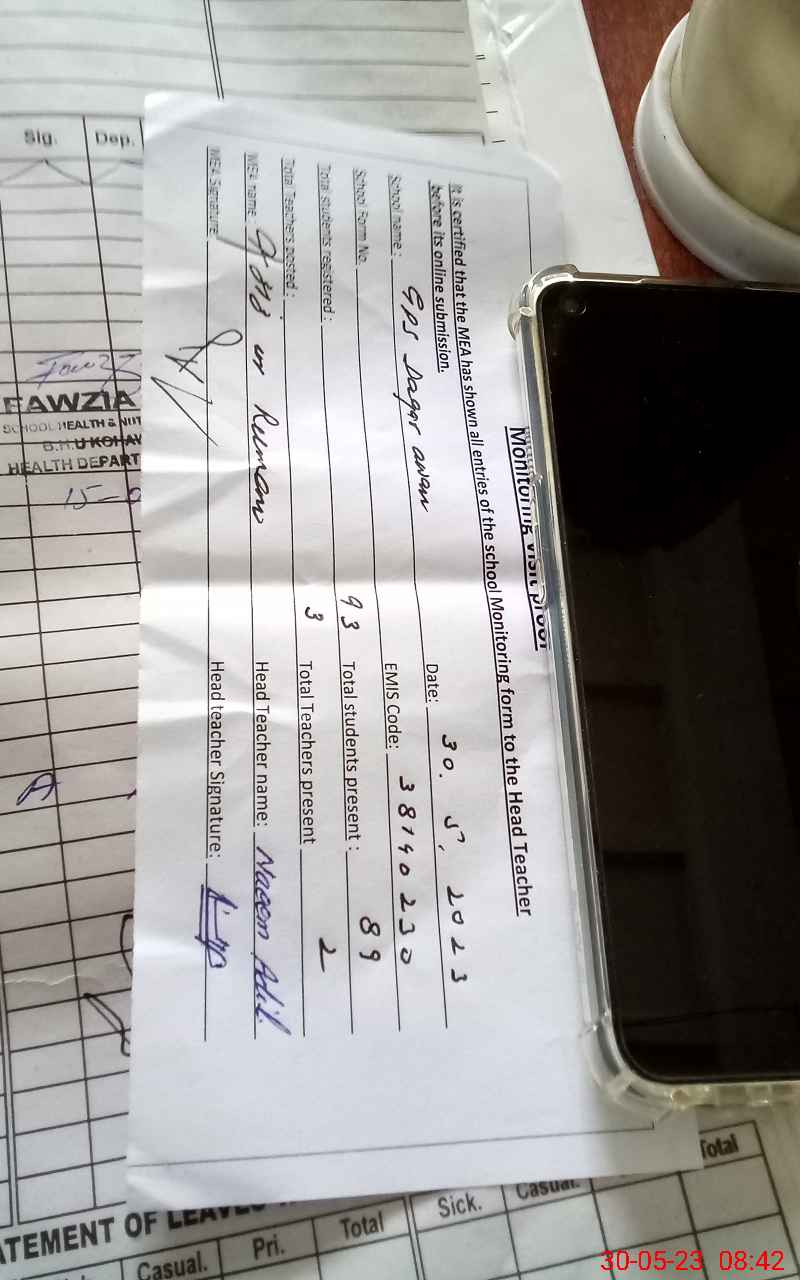 Monitoring visit proof
It is certified that the MEA has shown all entries of the school Monitoring form to the Head Teacher
before its online submission.
School name : GPS Dagar awan Date: 30. 5. 2023
School Form No. EMIS Code: 38140230
Total students registered : 93 Total students present : 89
Total Teachers posted : 3 Total Teachers present 2
MEA name : ur Reman Head Teacher name: Naeem Adil
MEA Signature: Head teacher Signature:
Sig. Dep.
FAWZIA
SCHOOL HEALTH & NUT
B.H.U KOHAW
HEALTH DEPART
15-0
A
ATEMENT OF LEAVES
Casual. Pri. Total Sick. Casual. Total
30-05-23 08:42